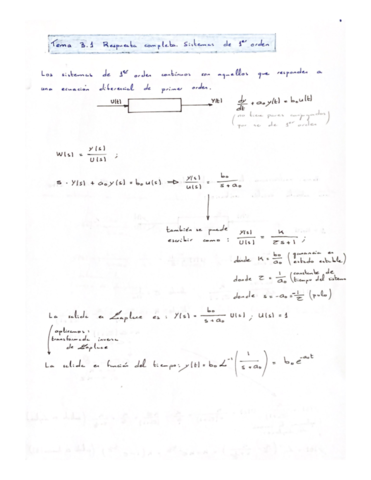 Tema 3.1 Respuesta completa. Sistemas de 1er orden
Los sistemas de 1er orden continuos son aquellos que responden a
una ecuación diferencial de primer orden.
U(t) Y(t) dy/dt + a₀ y(t) = b₀ u(t)
que no de 1er orden
W(s) = Y(s)/U(s) ;
s · Y(s) + a₀ y(s) = b₀ u(s) ⇒ Y(s)/U(s) = b₀/(s + a₀)
también se puede
escribir como : Y(s)/U(s) = K/(τs + 1) ;
donde K = b₀/a₀ (ganancia en estado estable)
donde τ = 1/a₀ (constante de tiempo del sistema)
donde s = -a₀ = -1/τ (polo)
La salida en Laplace es : Y(s) = b₀/(s + a₀) U(s) ; U(s) = 1
aplicamos :
transformada inversa
de Laplace
La salida en función del tiempo : y(t) = b₀ L⁻¹ (1/(s + a₀)) = b₀ e^(-a₀t)